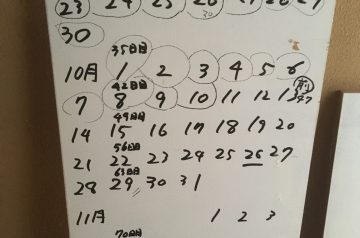 23 24 25 26 27 28 29
30
30
35日目
10月 1 2 3 4 5 6
42日目
7 8 9 10 11 12 13
49日目
14 15 16 17 18 19 20
56日目
21 22 23 24 25 26 27
63日目
28 29 30 31
11月 1 2 3
70日目